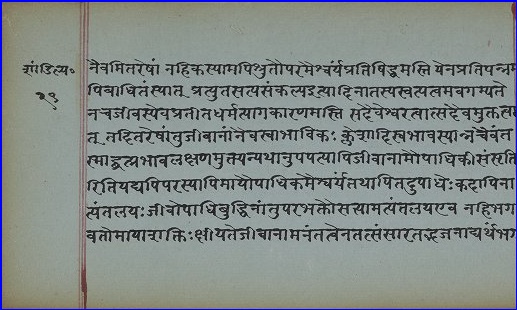 शांडिल्य॰
२९
नैवमितरेषां नहिकस्यामपिश्रुतौपरमैश्वर्यंप्रतिषिद्धमस्ति येनप्रतिपन्नम
पिबाधितंस्यात् प्रत्युतसत्यसंकल्पइत्यादिनातस्यस्वत्यत्वमवगम्यते
नचजीवस्येवप्रतीतधर्मत्यागकारणमस्ति सदैवेश्वरत्वात्सदैवमुक्तत्वा
त् तदितरेषांतुजीवानांनैवंस्वाभाविकः क्लेशादिस्वभावस्यान्वचैवंत
स्माद्ब्रत्यभावलक्षणमुक्त्यन्यथानुपपत्यापिजीवानामौपाधिकीसंसृति
रितियद्यपिपरस्यापिमायौपाधिकमैश्वर्यंतथापितदुपाधेः कदापिना
त्यंतलयः जीवोपाधिबुद्धीनांतुपरभक्तौसत्यामत्यंतलयएव नहिभग
वतोमायाशक्तिः क्षीयतेजीवानामनंतत्वेनतत्संसारतद्भजनाद्यर्थंभग